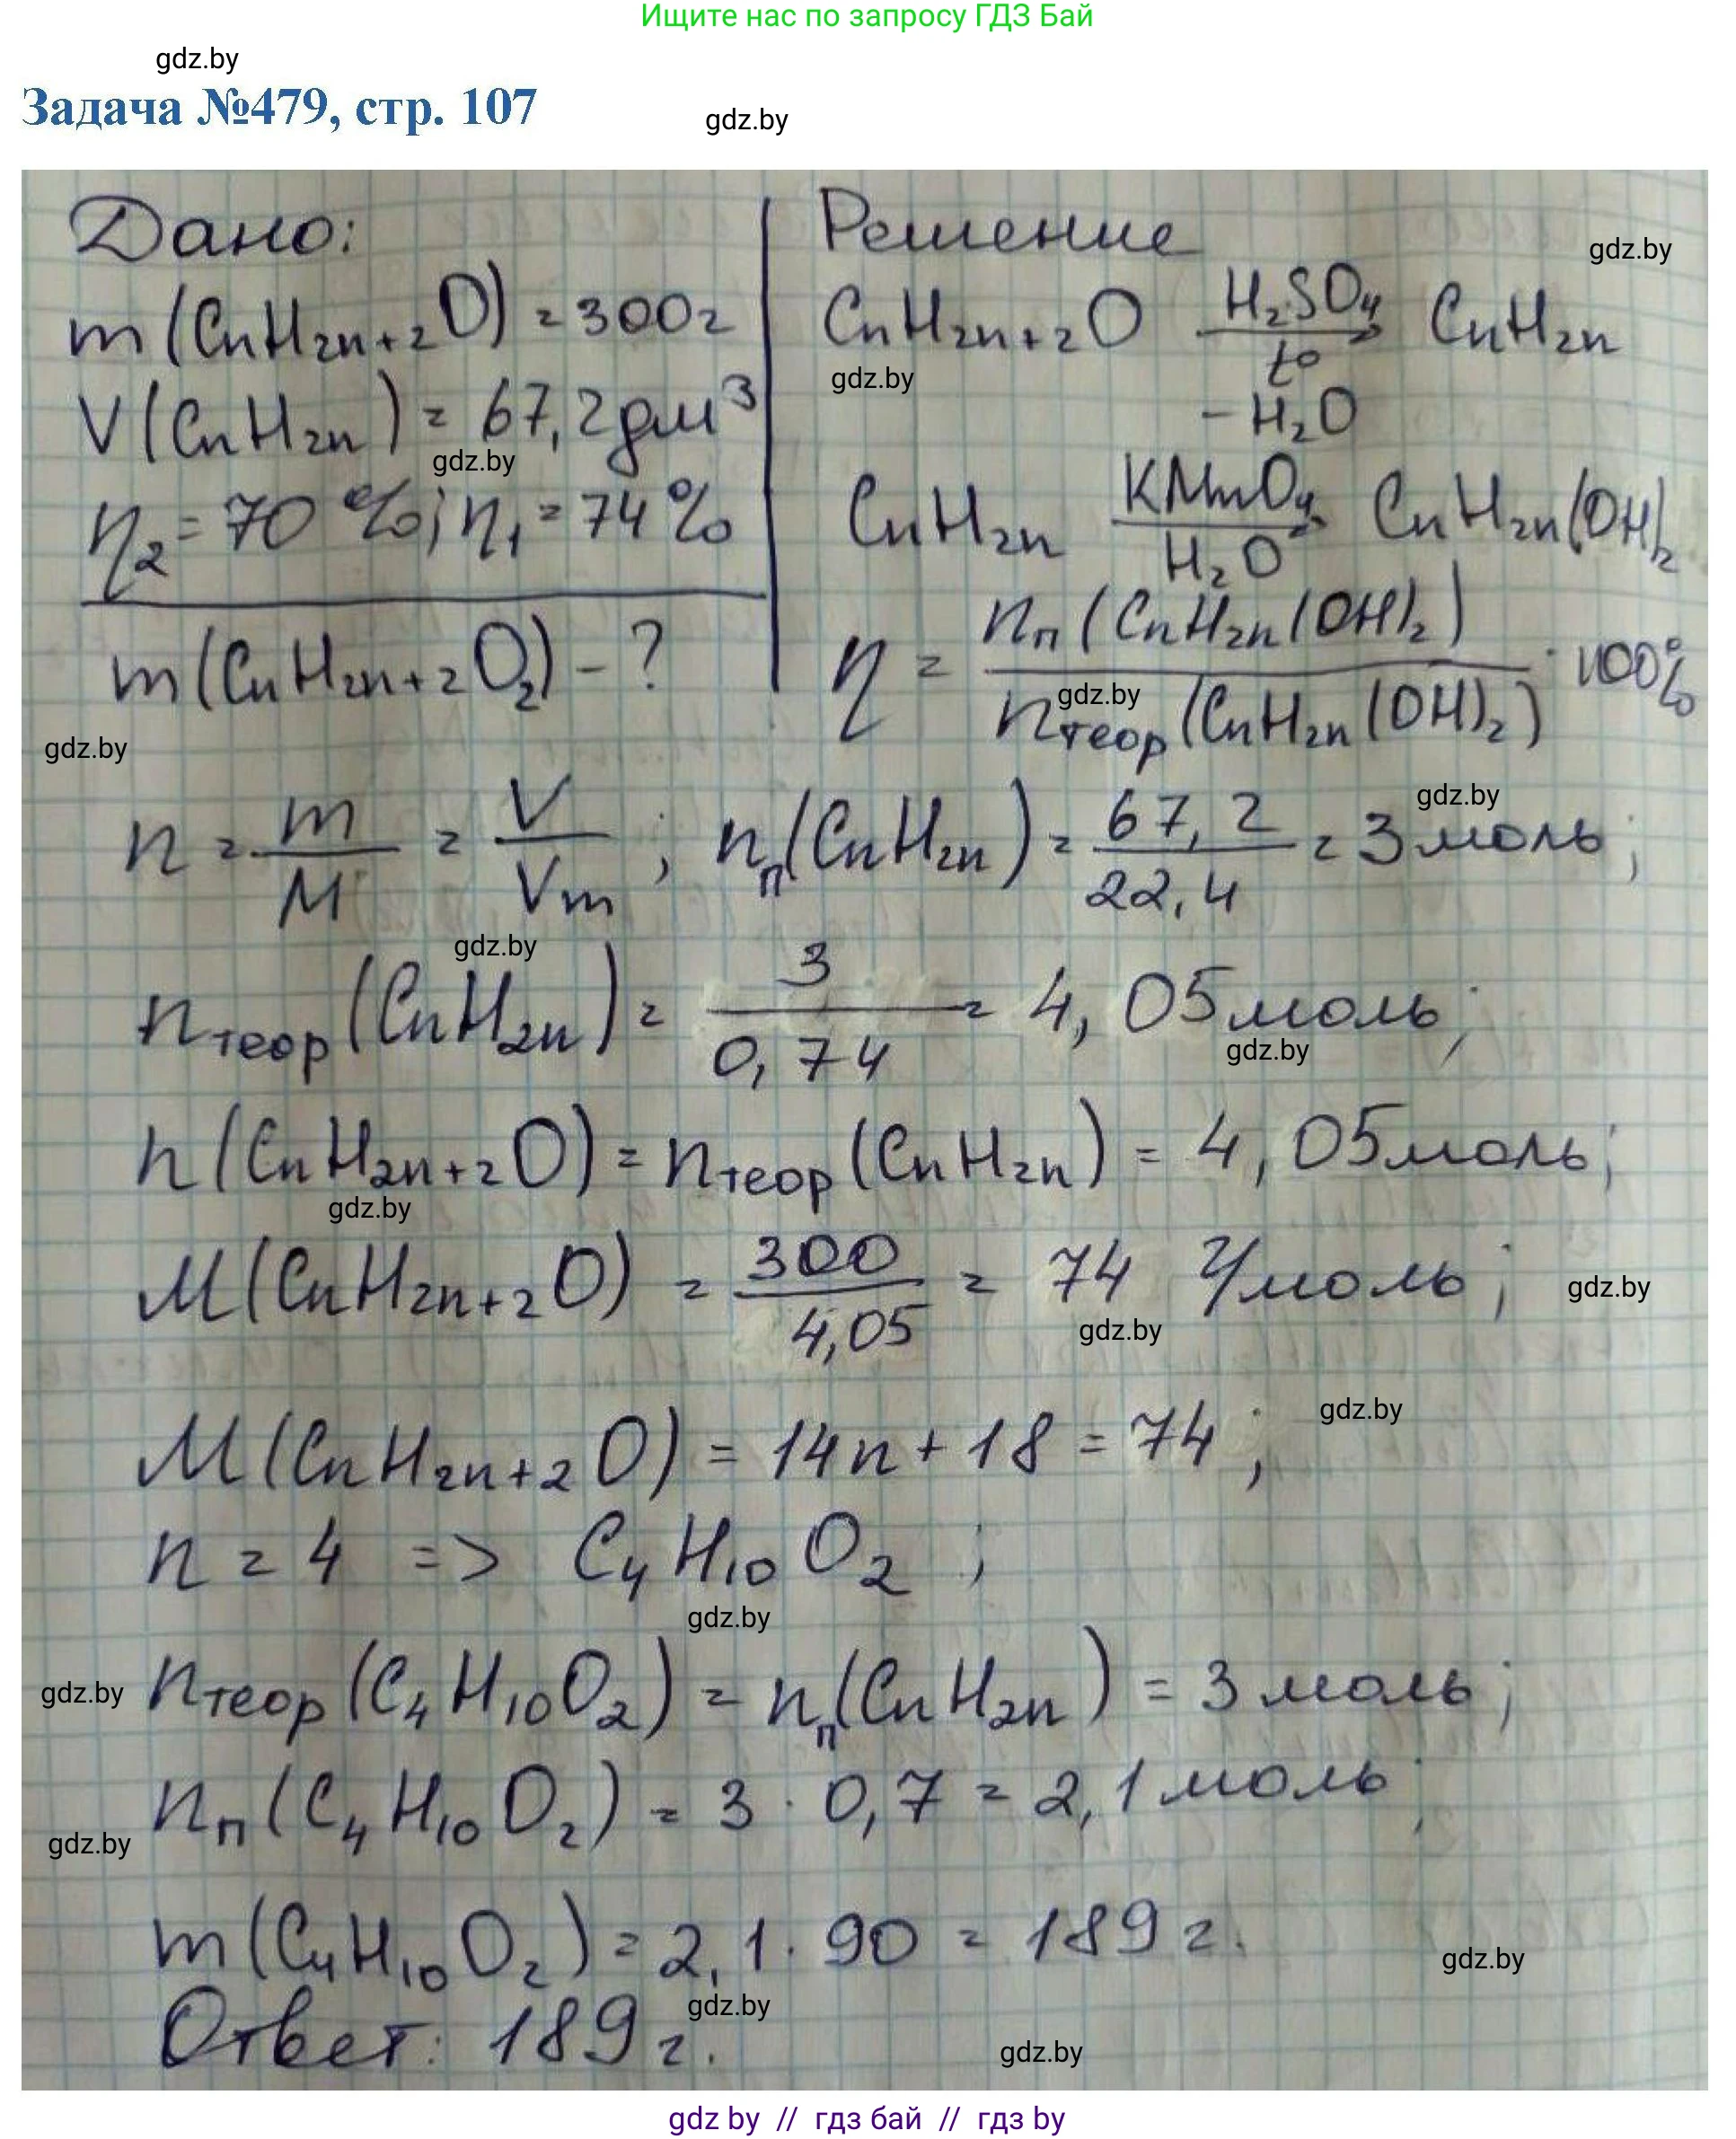 Ищите нас по запросу ГДЗ Бай
gdz.by
Задача №479, стр. 107
gdz.by
Дано:
m(CnH2n+2O) = 300г
V(CnH2n) = 67,2дм³
gdz.by
η2 = 70 %; η1 = 74%
m(CnH2n+2O2) - ?
gdz.by
Решение
gdz.by
CnH2n+2O H2SO4 → t° CnH2n
gdz.by
- H2O
CnH2n KMnO4 → H2O CnH2n(OH)2
η = nп(CnH2n(OH)2) / nтеор(CnH2n(OH)2) · 100%
gdz.by
gdz.by
n = m/M = V/Vm ; nп(CnH2n) = 67,2/22,4 = 3 моль;
gdz.by
nтеор(CnH2n) = 3/0,74 = 4,05 моль;
gdz.by
n(CnH2n+2O) = nтеор(CnH2n) = 4,05 моль;
gdz.by
M(CnH2n+2O) = 300/4,05 = 74 г/моль;
gdz.by
gdz.by
gdz.by
M(CnH2n+2O) = 14n + 18 = 74;
n = 4 => C4H10O2 ;
gdz.by
gdz.by
nтеор(C4H10O2) = nп(CnH2n) = 3 моль;
nп(C4H10O2) = 3 · 0,7 = 2,1 моль;
gdz.by
m(C4H10O2) = 2,1 · 90 = 189 г.
gdz.by
gdz.by
Ответ: 189 г.
gdz.by
gdz by // гдз бай // гдз by